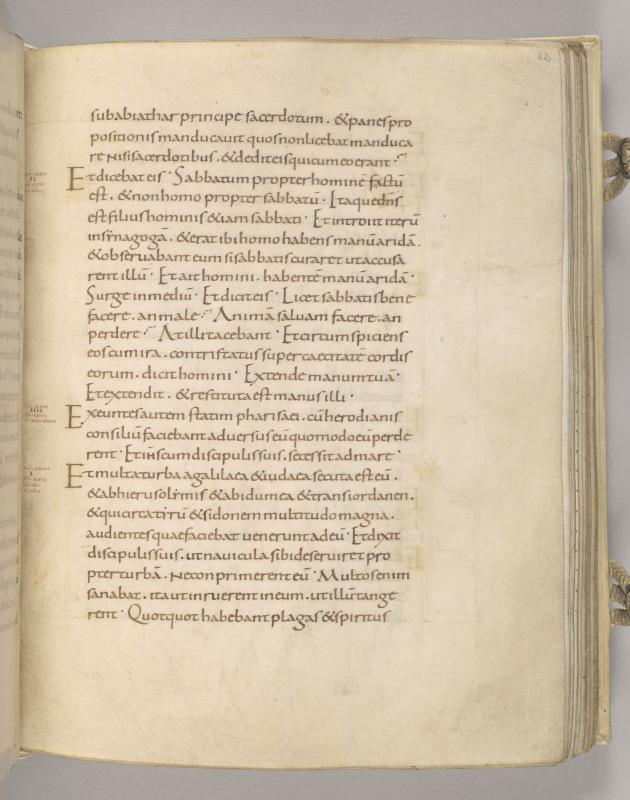 62
subabiathar principe sacerdotum. & panes pro
positionis manducauit quos non licebat manduca
re nisi sacerdotibus. & dedit eis qui cum eo erant.
Et dicebat eis. Sabbatum propter hominē factū
est. & non homo propter sabbatū. Itaque dn̄s
est filius hominis &iam sabbati. Et introiit iterū
in synagogā. & erat ibi homo habens manū aridā.
& obseruabant eum si sabbatis curaret ut accusa
rent illū. Et ait homini. habentē manū aridā.
Surge in mediū. Et dicit eis. Licet sabbatis bene
facere. an male. Animā saluam facere. an
perdere. At illi tacebant. Et circumspiciens
eos cum ira. contristatus super caecitatē cordis
eorum. dicit homini. Extende manum tuā.
Et extendit. & restituta est manus illi.
Exeuntes autem statim pharisaei. cū herodianis
consiliū faciebant aduersus eū quomodo eū perde
rent. Et ih̄s cum discipulis suis. secessit ad mare.
Et multa turba a galilaea & iudaea secuta est eū.
& ab hierusolymis & ab idumea & trans iordanen.
& qui circa tyrū & sidonem multitudo magna.
audientes quae faciebat uenerunt ad eū. Et dixit
discipulis suis. ut nauicula sibi deseruiret pro
pter turbā. Ne conprimerent eū. Multos enim
sanabat. ita ut inruerent in eum. ut illū tange
rent. Quotquot habebant plagas & spiritus